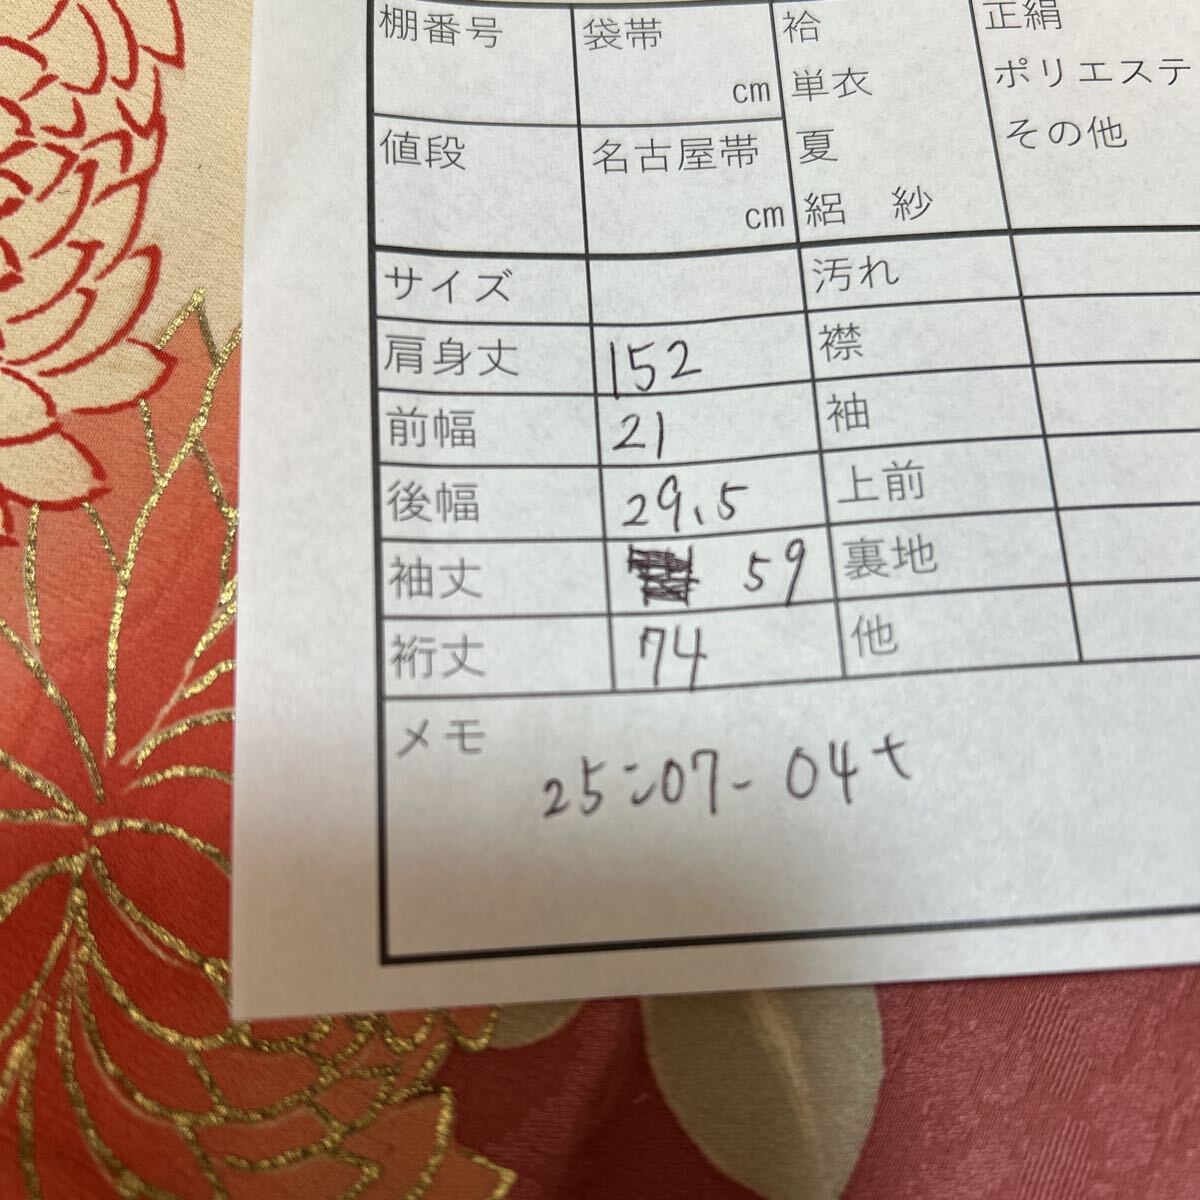 棚番号 袋帯 cm 袷 正絹
単衣 ポリエステ
値段 名古屋帯 cm 夏 その他
絽 紗
サイズ 汚れ
肩身丈 152 襟
前幅 21 袖
後幅 29.5 上前
袖丈 59 裏地
裄丈 74 他
メモ
25ニ07-04t